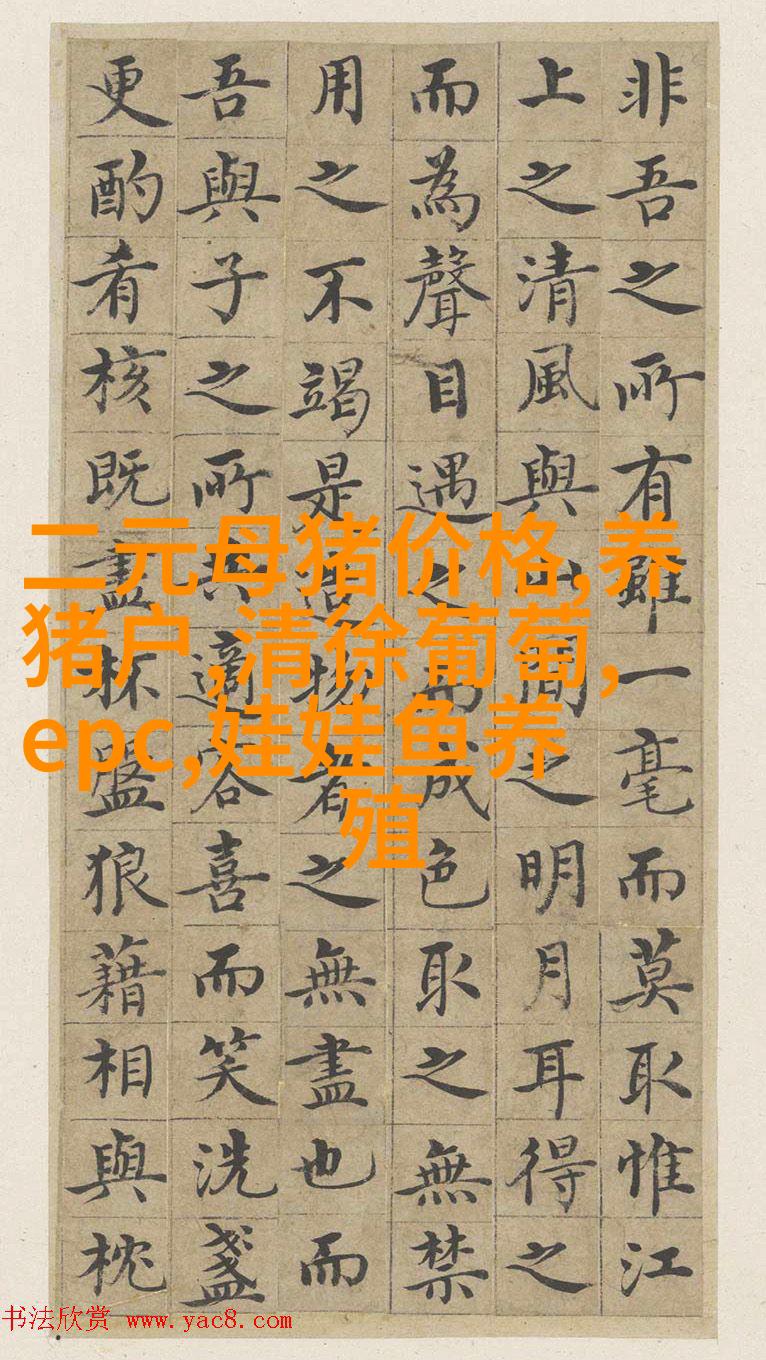 非吾之所有雖一毫而莫取惟江
上之清風與山間之明月耳得之
而為聲目遇之而成色取之無禁
用之不竭是造物者之無盡也而
吾與子之所共適客喜而笑洗盞
更酌肴核既盡杯盤狼藉相與枕
二元母猪价格,养
猪户,清徐葡萄,
epc,娃娃鱼养
殖
书法欣赏 www.yac8.com